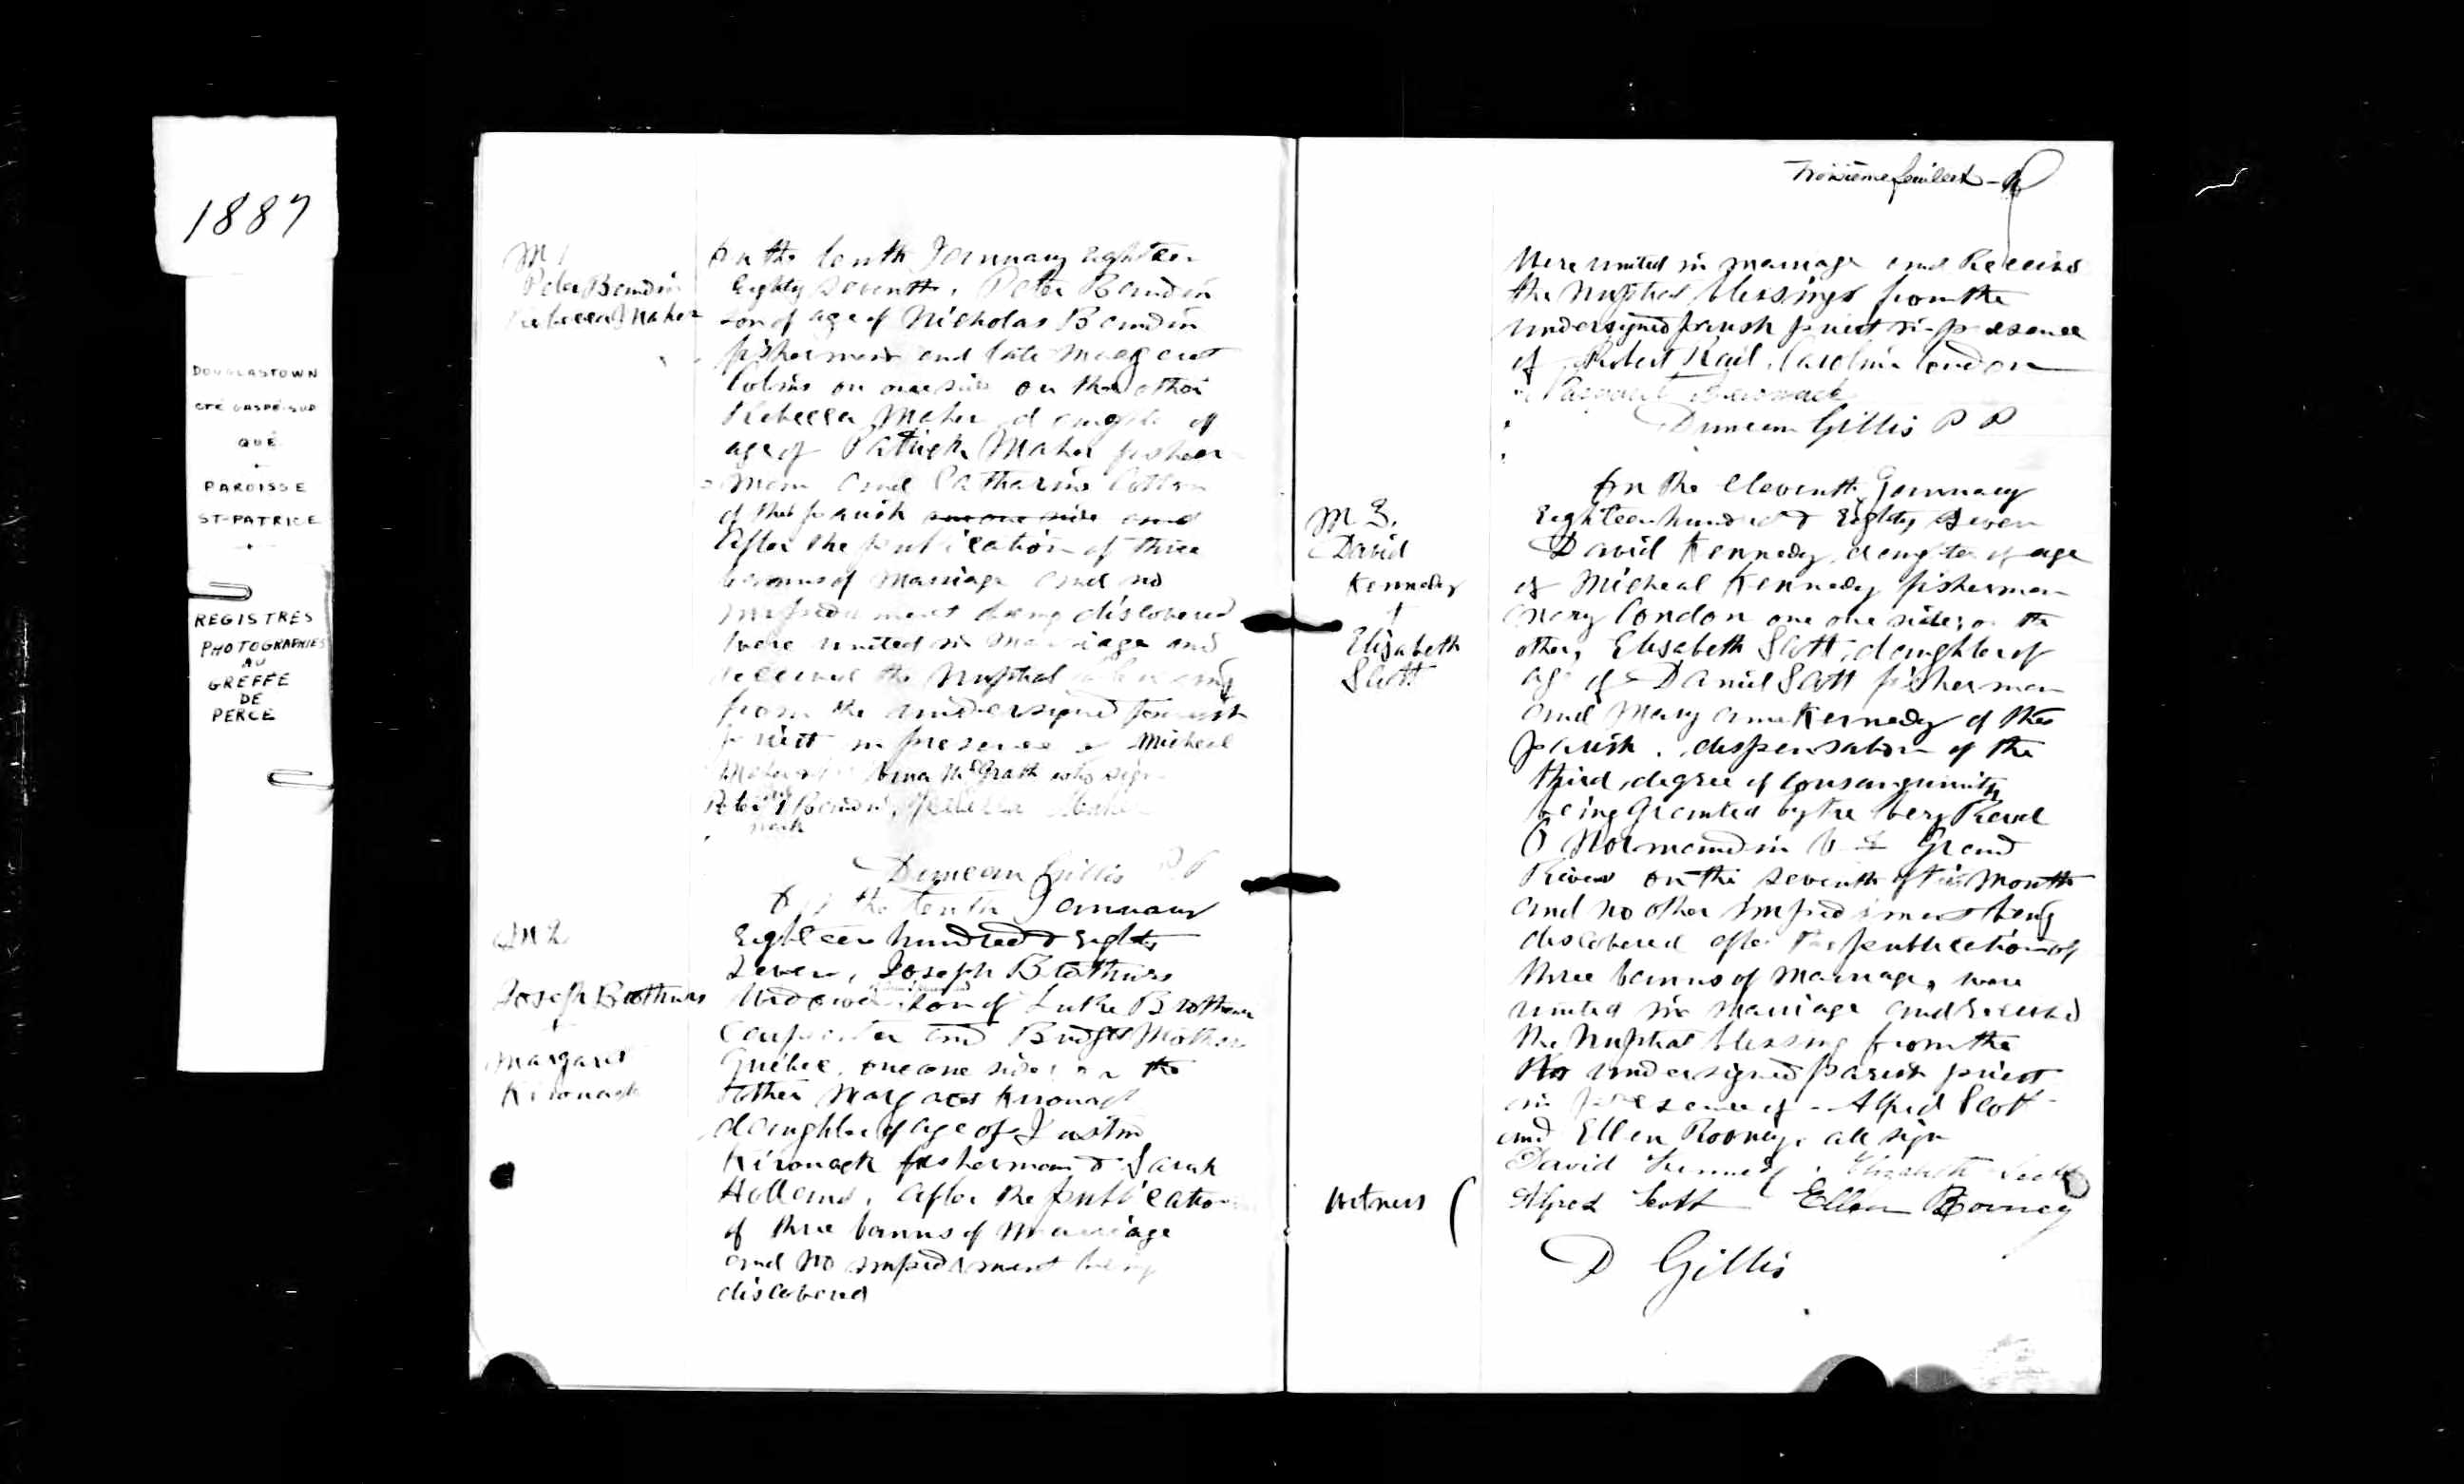 1887
DOUGLASTOWN
CTÉ GASPÉ-SUD
QUÉ
PAROISSE
ST-PATRICE
REGISTRES
PHOTOGRAPHIÉS
AU
GREFFE
DE
PERCE
M 1
Peter Baudin
Rebecca Maher
On the tenth January Eighteen
Eighty seventh, Peter Baudin
son of age of Nicholas Baudin
fisherman and late Margaret
on one side on the other
Rebecca Maher daughter of
age of Patrick Maher fisher
man and Catharine
of this parish on one side and
After the publication of three
banns of Marriage and no
impediment being discovered
were united in Marriage and
received the Nuptial
from the undersigned parish
priest in presence of Micheal
Maher Anna McGrath who sign
Peter Baudin, Rebecca Maher
mark
Duncan Gillis P P
On the tenth January
M 2
Eighteen hundred & Eighty
Seven, Joseph Brothers
Joseph Brothers
Widower son of Luke Brothers
and Bridget
Margaret
Quebec, one one side; on the
Kironack
other Margaret Kironack
daughter of age of Justin
Kironack fisherman & Sarah
Holland, After the publication
of three banns of Marriage
and no impediment being
discovered
Troisième feuillet -
Were united in marriage and Received
the Nuptial blessings from the
undersigned parish priest in presence
of Robert Rail, Caroline Condon
Duncan Gillis P P
On the eleventh January
M 3.
Eighteen hundred & Eighty Seven
David
David Kennedy, daughter of age
Kennedy
of Micheal Kennedy fisherman
+
Mary Condon one one side; on the
Elizabeth
other, Elisabeth Scott, daughter of
Scott
age of Daniel Scott fisherman
and Mary Anne Kennedy of this
parish, dispensation of the
third degree of Consanguinity
being Granted by the Very Revd
Normandin V Grand
River on the seventh of this Month
and no other impediment being
discovered after the publication of
three banns of Marriage, were
united in Marriage and received
the Nuptial blessing from the
undersigned parish priest
in presence of - Alfred Scott
and Ellen Rooney. all sign
David Kennedy, Elizabeth Scott
Witness (
Alfred Scott Ellen Rooney
D Gillis